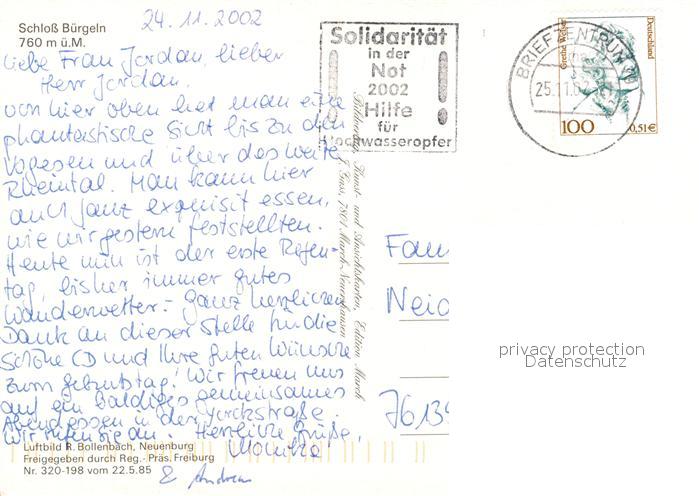 Schloß Bürgeln
760 m ü.M.
24.11.2002
Liebe Frau Jordan, lieber
Herr Jordan,
von hier oben hat man eine
phantastische Sicht bis zu den
Vogesen und über das weite
Rheintal. Man kann hier
auch ganz exquisit essen,
wie wir gestern feststellten.
Heute nun ist der erste Regen-
tag, bisher immer gutes
Wanderwetter. – Ganz herzlichen
Dank an dieser Stelle für die
schöne CD und Ihre guten Wünsche
zum Geburtstag! Wir freuen uns
auf ein baldiges gemeinsames
Abendessen in der Yorckstraße.
Wir rufen Sie an. Herzliche Grüße,
Monika
& Andreas
Luftbild R. Bollenbach, Neuenburg
Freigegeben durch Reg.- Präs. Freiburg
Nr. 320-198 vom 22.5.85
Solidarität
in der
Not
2002
Hilfe
für
Hochwasseropfer
Kunst- und Ansichtskarten, Edition March
BRIEFZENTRUM
25.11.02
Grethe Weiser
Deutschland
100
0,51€
Fam
Neid
7613
privacy protection
Datenschutz